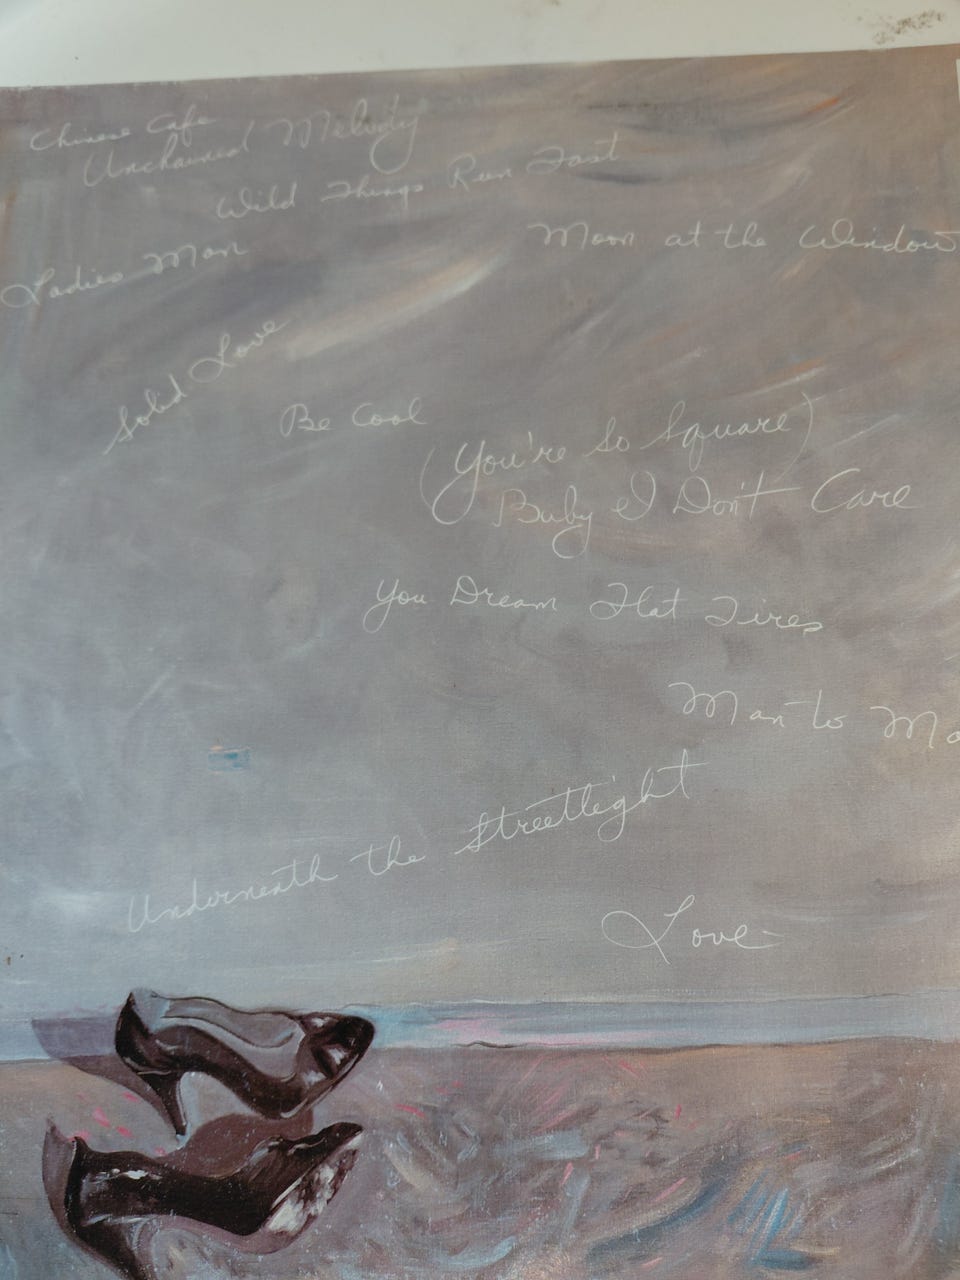 Chinese Cafe
Unchained Melody
Wild Things Run Fast
Moon at the Window
Ladies Man
Solid Love
Be Cool
(You're So Square)
Baby I Don't Care
You Dream Flat Tires
Man to Ma
Underneath the Streetlight
Love